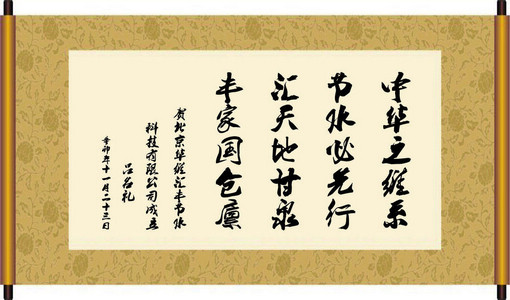 中华之维系
节水必先行
汇天地甘泉
丰家国仓廪
贺北京华维汇丰节水
科技有限公司成立
吕名礼
辛卯年十一月二十三日